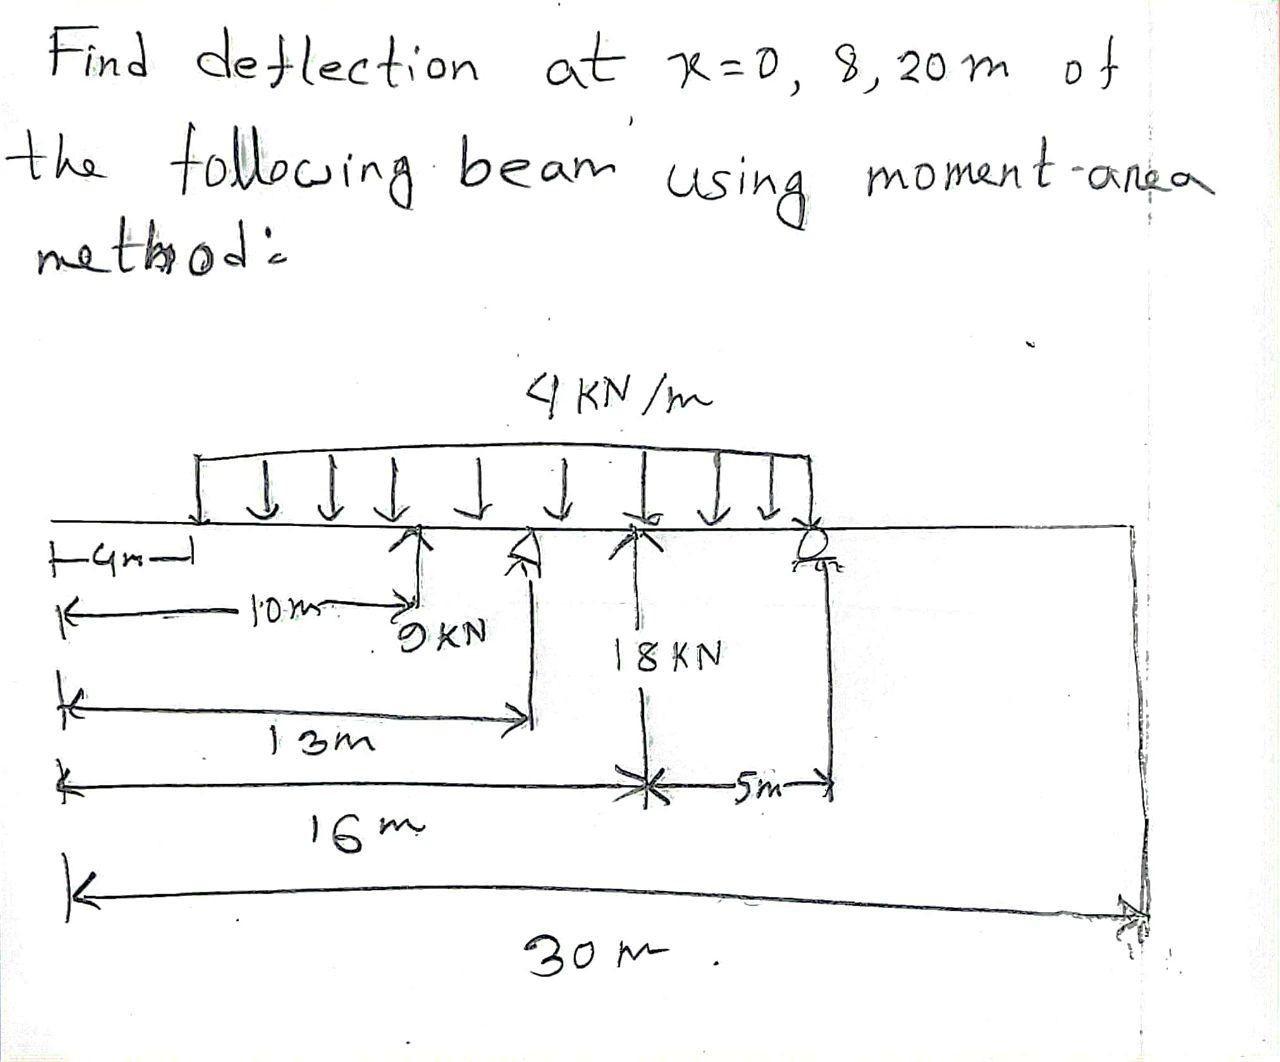 Find deflection at x=0, 8, 20 m of
the following beam using moment-area
method:
4 KN/m
4m
10m
9 KN
18 KN
13m
5m
16m
30 m.